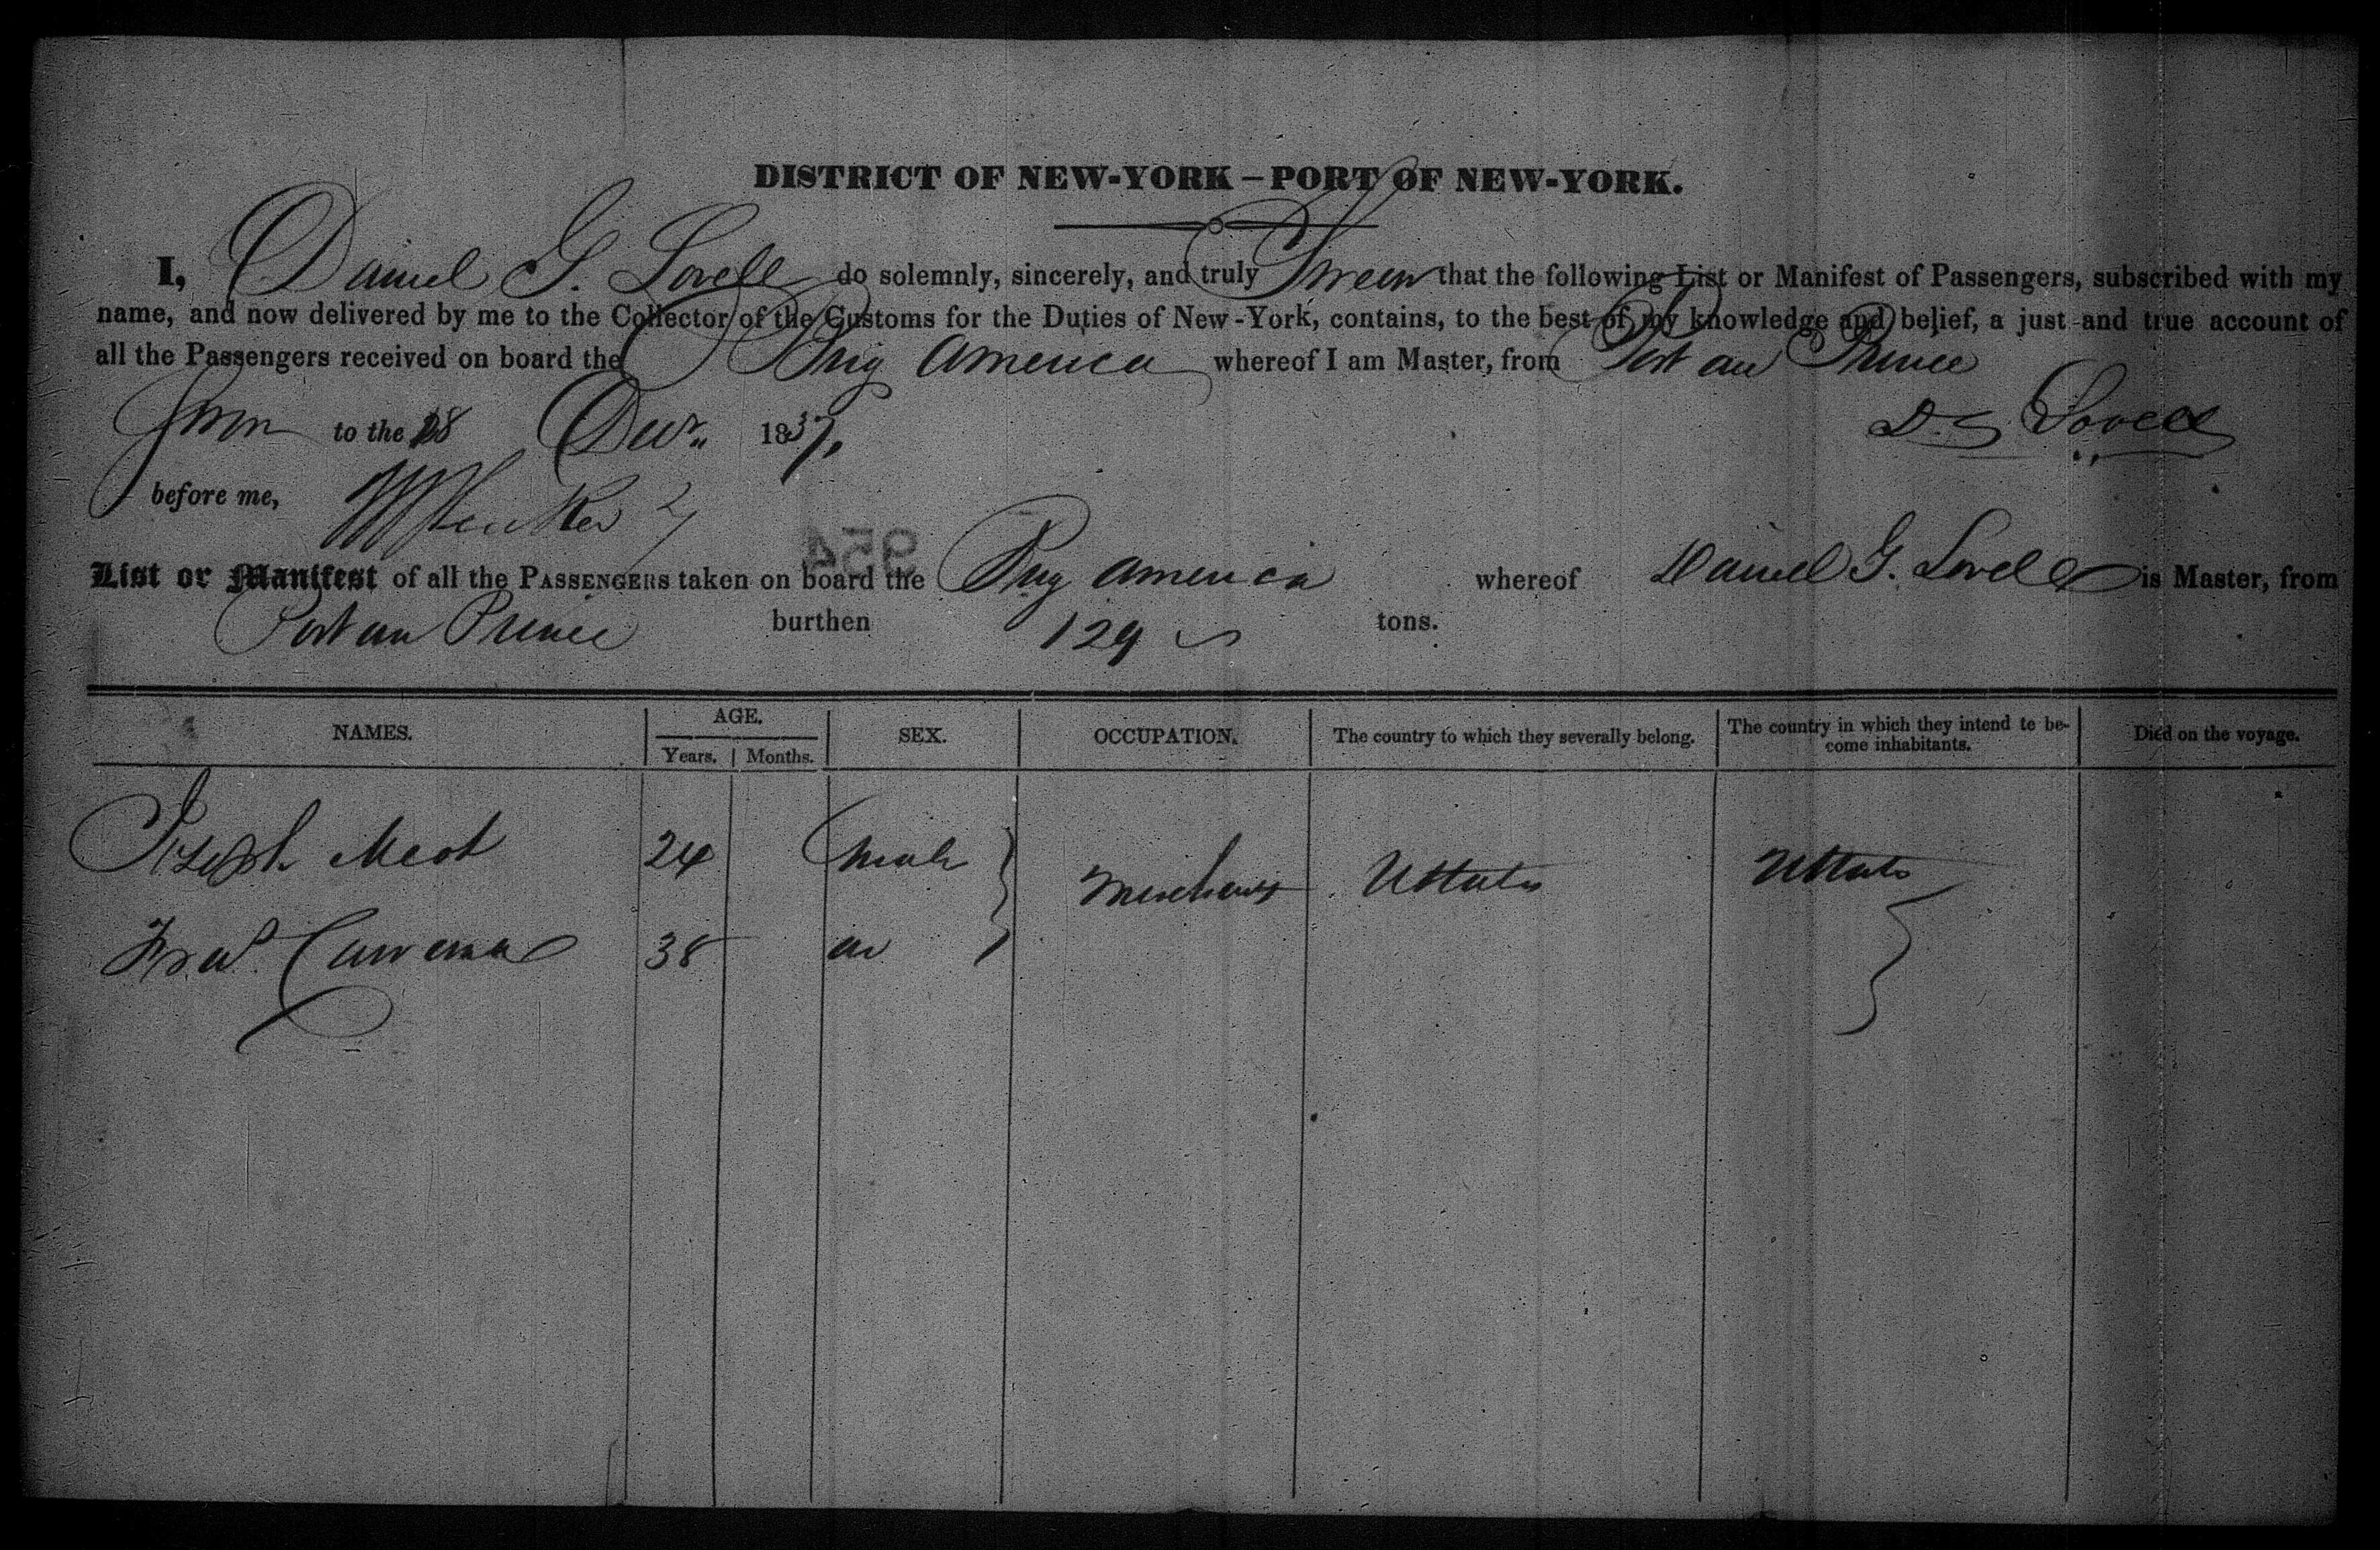 DISTRICT OF NEW-YORK – PORT OF NEW-YORK.
I, Daniel G. Lovell do solemnly, sincerely, and truly Swear that the following List or Manifest of Passengers, subscribed with my
name, and now delivered by me to the Collector of the Customs for the Duties of New-York, contains, to the best of my knowledge and belief, a just and true account of
all the Passengers received on board the Brig America whereof I am Master, from Port au Prince
Sworn to the 28 Decr. 1837. D. G. Lovell
before me,
954
List or Manifest of all the PASSENGERS taken on board the Brig America whereof Daniel G. Lovell is Master, from
Port au Prince burthen 129 tons.
NAMES. AGE. SEX. OCCUPATION. The country to which they severally belong. The country in which they intend te be-
come inhabitants. Died on the voyage.
Years. Months.
Joseph 24 Male Merchants UStates UStates
38